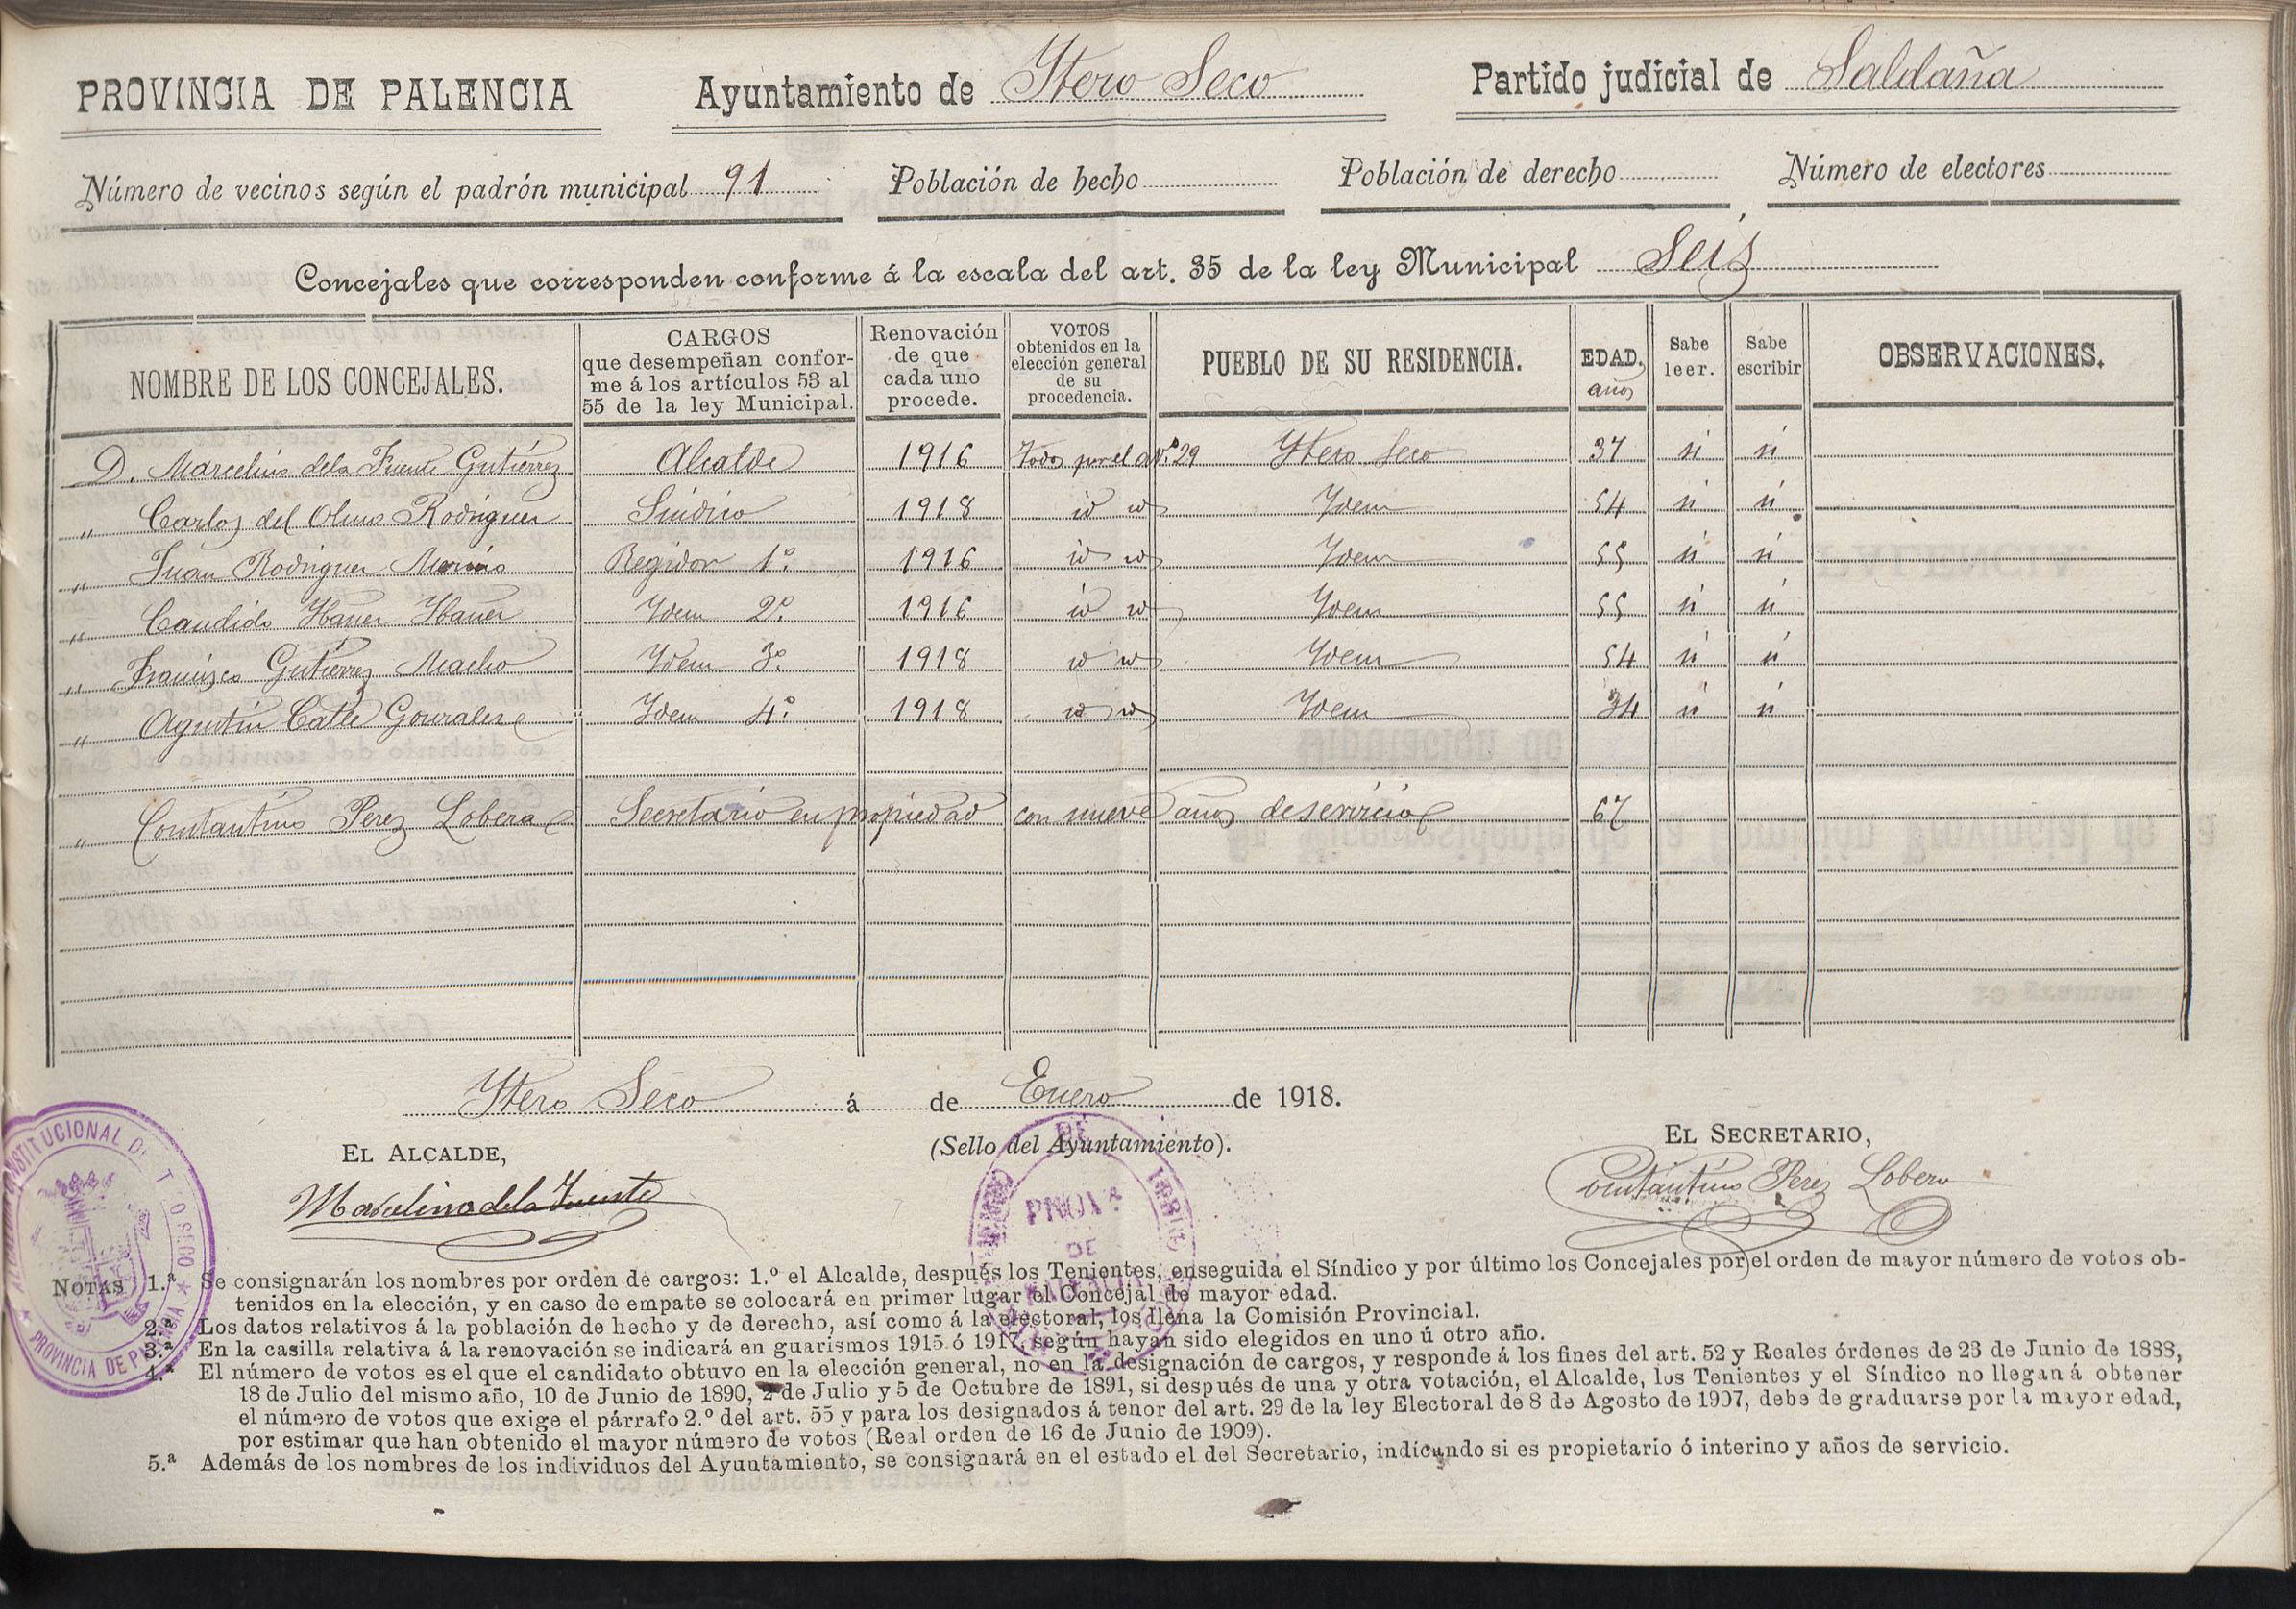 PROVINCIA DE PALENCIA Ayuntamiento de Ytero Seco Partido judicial de Saldaña
Número de vecinos según el padrón municipal 91 Población de hecho Población de derecho Número de electores
Concejales que corresponden conforme á la escala del art. 35 de la ley Municipal Seis
NOMBRE DE LOS CONCEJALES.
CARGOS
que desempeñan confor-
me á los artículos 53 al
55 de la ley Municipal.
Renovación
de que
cada uno
procede.
VOTOS
obtenidos en la
elección general
de su
procedencia.
PUEBLO DE SU RESIDENCIA.
EDAD.
años
Sabe
leer.
Sabe
escribir
OBSERVACIONES.
D. Marcelino dela Fuente Gutiérrez Alcalde 1916 Todos por el art.º 29 Ytero Seco 37 si si
" Carlos del Olmo Rodriguez Sindico 1918 id id Ydem 54 si si
" Juan Rodriguez Merino Regidor 1º. 1916 id id Ydem 55 si si
" Candido Ibañez Ibañez Ydem 2º. 1916 id id Ydem 55 si si
" Francisco Gutiérrez Macho Ydem 3º 1918 id id Ydem 54 si si
" Agustin Calle Gonzalez Ydem 4º. 1918 id id Ydem 34 si si
" Constantino Perez Lobera Secretario en propiedad con nueve años de servicio 67
Ytero Seco á de Enero de 1918.
EL ALCALDE,
(Sello del Ayuntamiento).
EL SECRETARIO,
Marcelino dela Fuente
Constantino Perez Lobera
NOTAS 1.ª Se consignarán los nombres por orden de cargos: 1.º el Alcalde, después los Tenientes, enseguida el Síndico y por último los Concejales por el orden de mayor número de votos ob-
tenidos en la elección, y en caso de empate se colocará en primer lugar el Concejal de mayor edad.
2.ª Los datos relativos á la población de hecho y de derecho, así como á la electoral, los llena la Comisión Provincial.
3.ª En la casilla relativa á la renovación se indicará en guarismos 1915 ó 1917, según hayan sido elegidos en uno ú otro año.
4.ª El número de votos es el que el candidato obtuvo en la elección general, no en la designación de cargos, y responde á los fines del art. 52 y Reales órdenes de 23 de Junio de 1888,
18 de Julio del mismo año, 10 de Junio de 1890, 2 de Julio y 5 de Octubre de 1891, si después de una y otra votación, el Alcalde, los Tenientes y el Síndico no llegan á obtener
el número de votos que exige el párrafo 2.º del art. 55 y para los designados á tenor del art. 29 de la ley Electoral de 8 de Agosto de 1907, debe de graduarse por la mayor edad,
por estimar que han obtenido el mayor número de votos (Real orden de 16 de Junio de 1909).
5.ª Además de los nombres de los individuos del Ayuntamiento, se consignará en el estado el del Secretario, indicando si es propietario ó interino y años de servicio.
PROVINCIA DE PALENCIA
DE
PROV.ª
DE